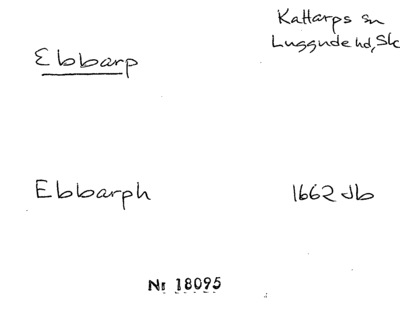 Ebbarp
Kattarps sn
Luggude hd, Sk
Ebbarph
1662 Jb
Nr 18095